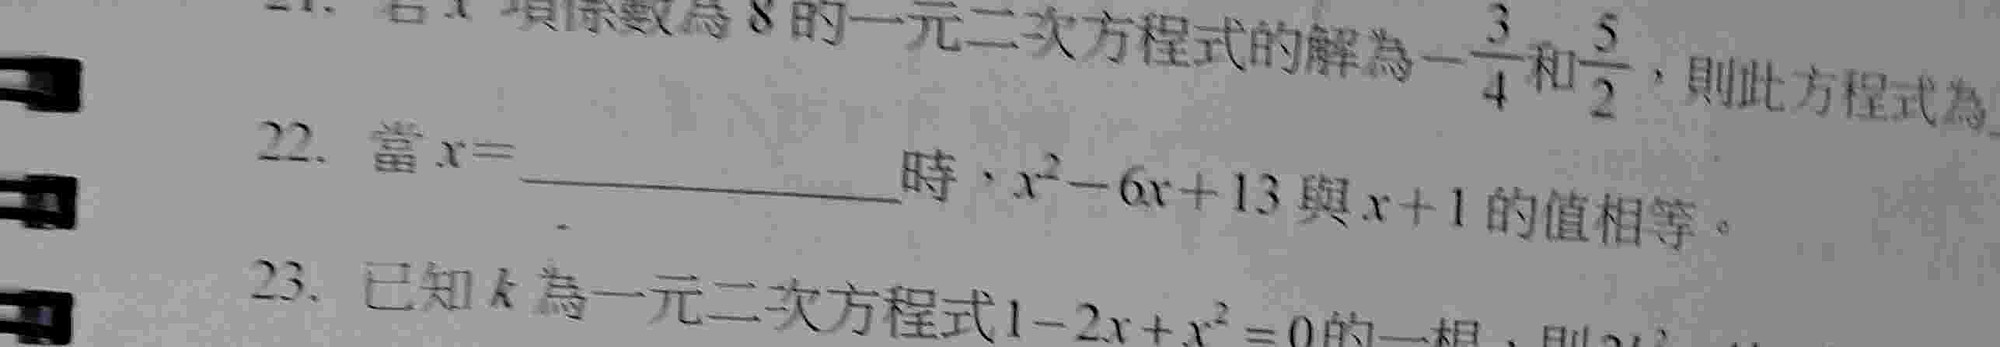 21. 若 x 項係數為 8 的一元二次方程式的解為 −3/4 和 5/2，則此方程式為
22. 當 x=__________時，x²−6x+13 與 x+1 的值相等。
23. 已知 k 為一元二次方程式 1−2x+x²=0 的一根，則